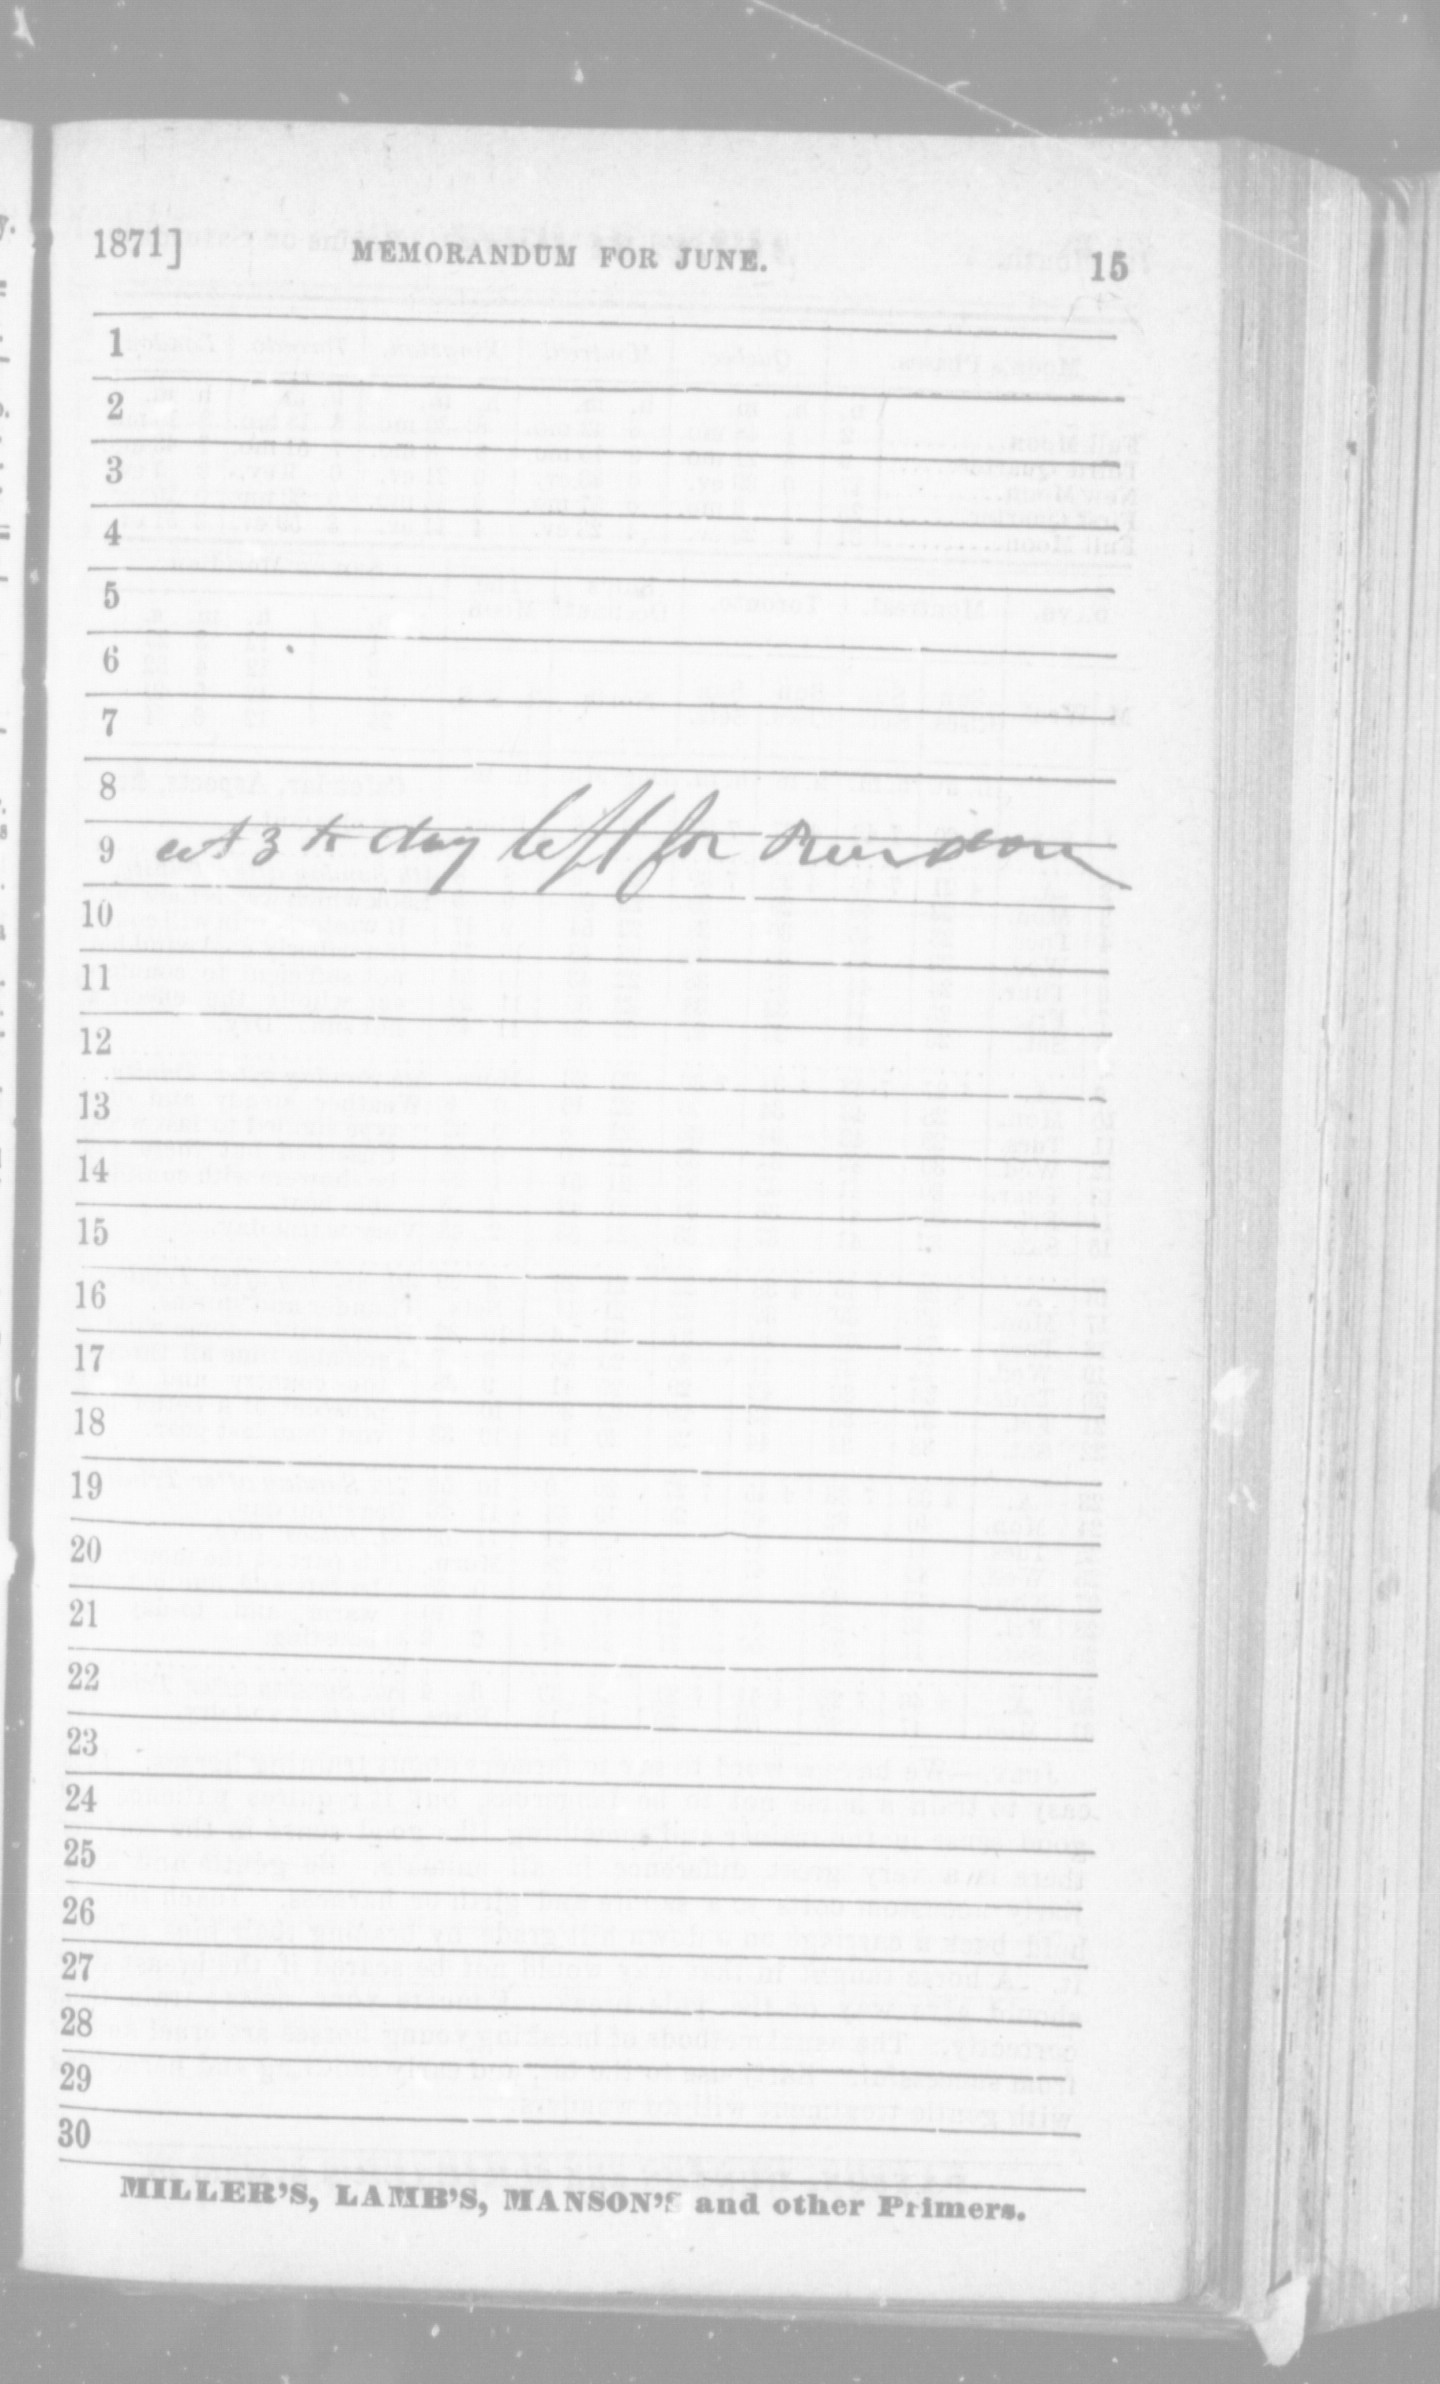 1871] MEMORANDUM FOR JUNE. 15
1
2
3
4
5
6
7
8
9 at 3 to day left for
10
11
12
13
14
15
16
17
18
19
20
21
22
23
24
25
26
27
28
29
30
MILLER'S, LAMB'S, MANSON'S and other Primers.